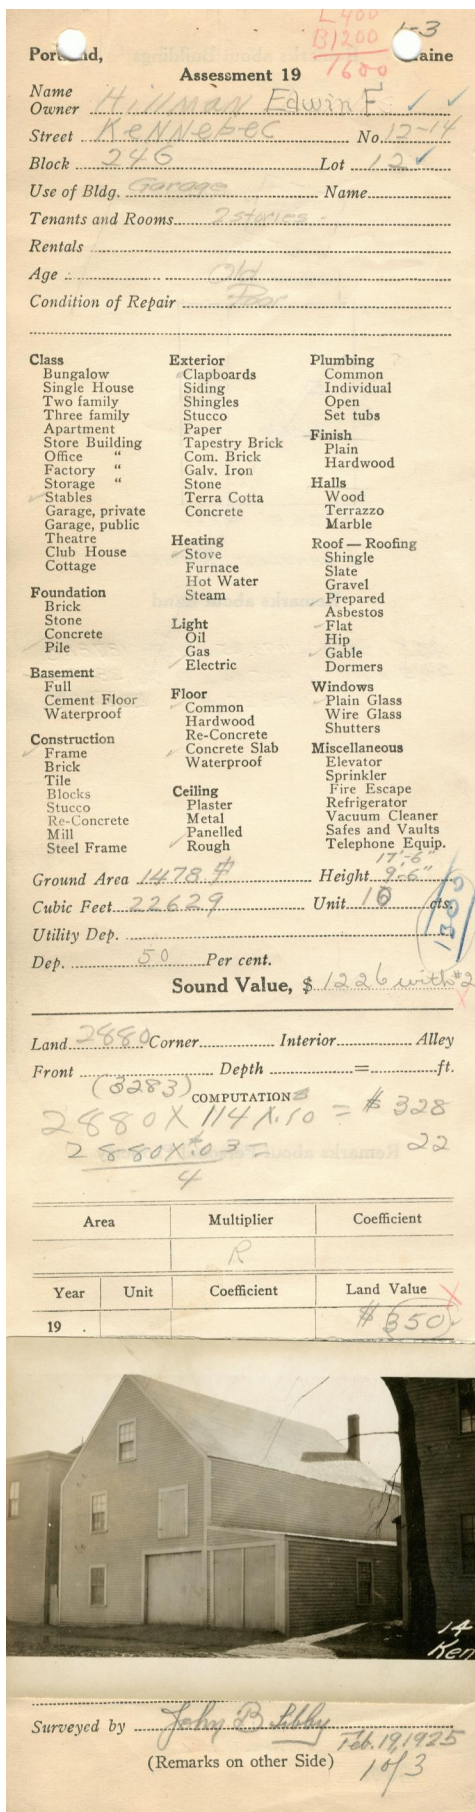 L 400
B1200
1600
1-3
Portland, Maine
Assessment 19
Name
Owner Hillman Edwin F ✓ ✓
Street Kennebec No. 12-14
Block 246 Lot 12 ✓
Use of Bldg. Garage Name
Tenants and Rooms 2 stories
Rentals
Age Old
Condition of Repair Poor
Class
Bungalow
Single House
Two family
Three family
Apartment
Store Building
Office "
Factory "
Storage "
✓ Stables
Garage, private
Garage, public
Theatre
Club House
Cottage
Foundation
Brick
Stone
Concrete
✓ Pile
Basement
Full
Cement Floor
Waterproof
Construction
✓ Frame
Brick
Tile
Blocks
Stucco
Re-Concrete
Mill
Steel Frame
Exterior
✓ Clapboards
Siding
Shingles
Stucco
Paper
Tapestry Brick
Com. Brick
Galv. Iron
Stone
Terra Cotta
Concrete
Heating
✓ Stove
Furnace
Hot Water
Steam
Light
Oil
Gas
✓ Electric
Floor
✓ Common
Hardwood
Re-Concrete
✓ Concrete Slab
Waterproof
Ceiling
Plaster
Metal
✓ Panelled
✓ Rough
Plumbing
Common
Individual
Open
Set tubs
Finish
Plain
Hardwood
Halls
Wood
Terrazzo
Marble
Roof — Roofing
Shingle
Slate
Gravel
✓ Prepared
Asbestos
✓ Flat
Hip
✓ Gable
Dormers
Windows
✓ Plain Glass
Wire Glass
Shutters
Miscellaneous
Elevator
Sprinkler
Fire Escape
Refrigerator
Vacuum Cleaner
Safes and Vaults
Telephone Equip.
17'-6"
Ground Area 1478 Height 9'-6"
Cubic Feet 22629 Unit 10 cts.
1300
Utility Dep.
Dep. 50 Per cent.
Sound Value, $ 1226 with #2
Land 2880 Corner Interior Alley
Front Depth = ft.
(3283)
COMPUTATION
2880 X 114 X .10 = $ 328
2880 X .03 = 22
4
Area Multiplier Coefficient
R
Year Unit Coefficient Land Value
19 . $ 350
14
Ken
Surveyed by John B Libby
Feb. 19, 1925
(Remarks on other Side)
1 of 3